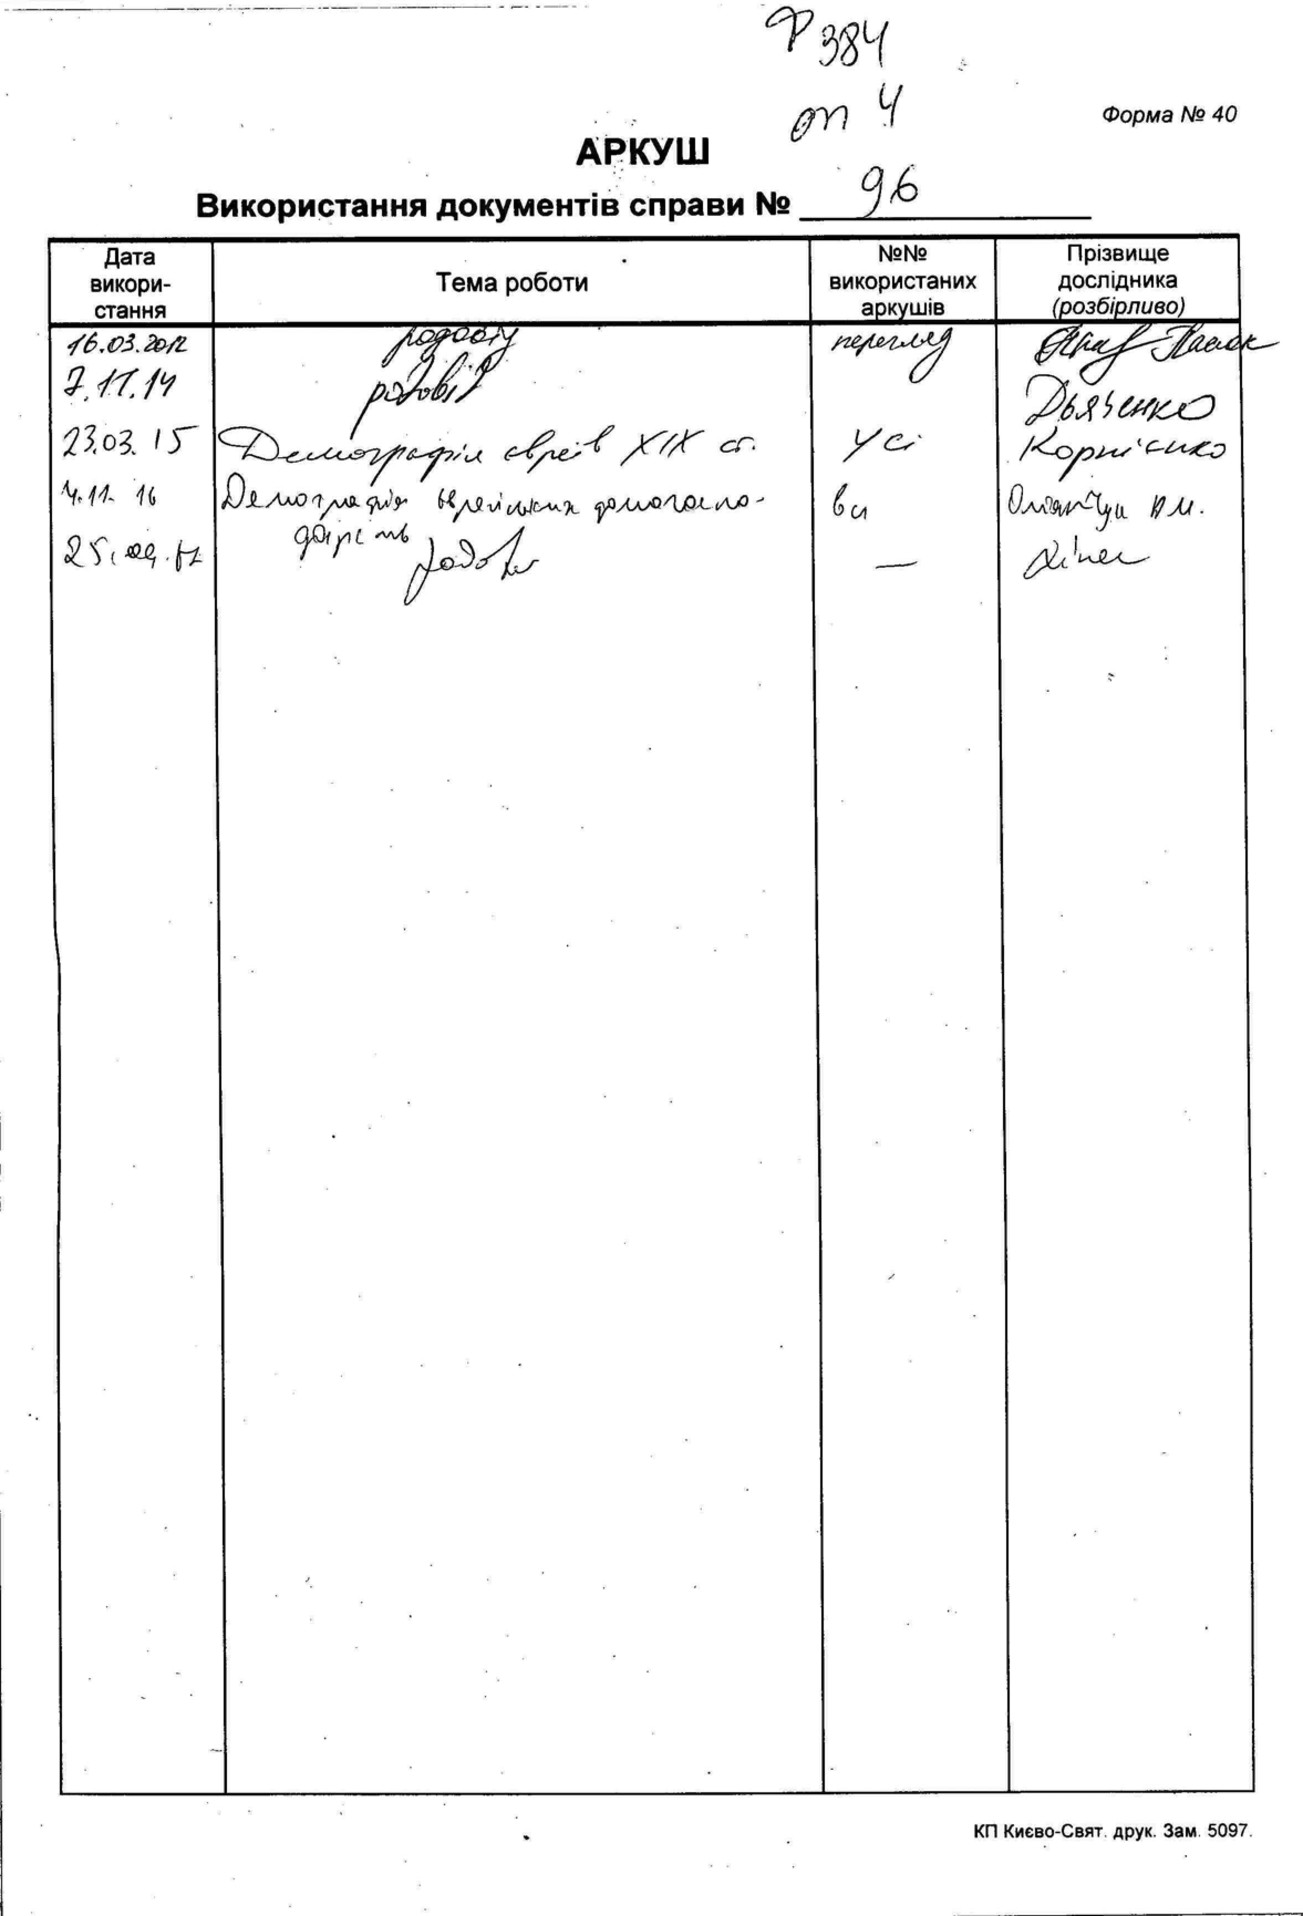 Ф 384
оп 4
Форма № 40
АРКУШ
Використання документів справи № 96
Дата викори-стання
Тема роботи
№№ використаних аркушів
Прізвище дослідника (розбірливо)
16.03.2012 родовід перегляд
7.11.14 родовід Дьяченко
23.03.15 Демографія євреїв XIX ст. Усі Корнієнко
4.11.16 Демографія єврейських домогоспо-
дарств
25.09.17 Родовід —
КП Києво-Свят. друк. Зам. 5097.